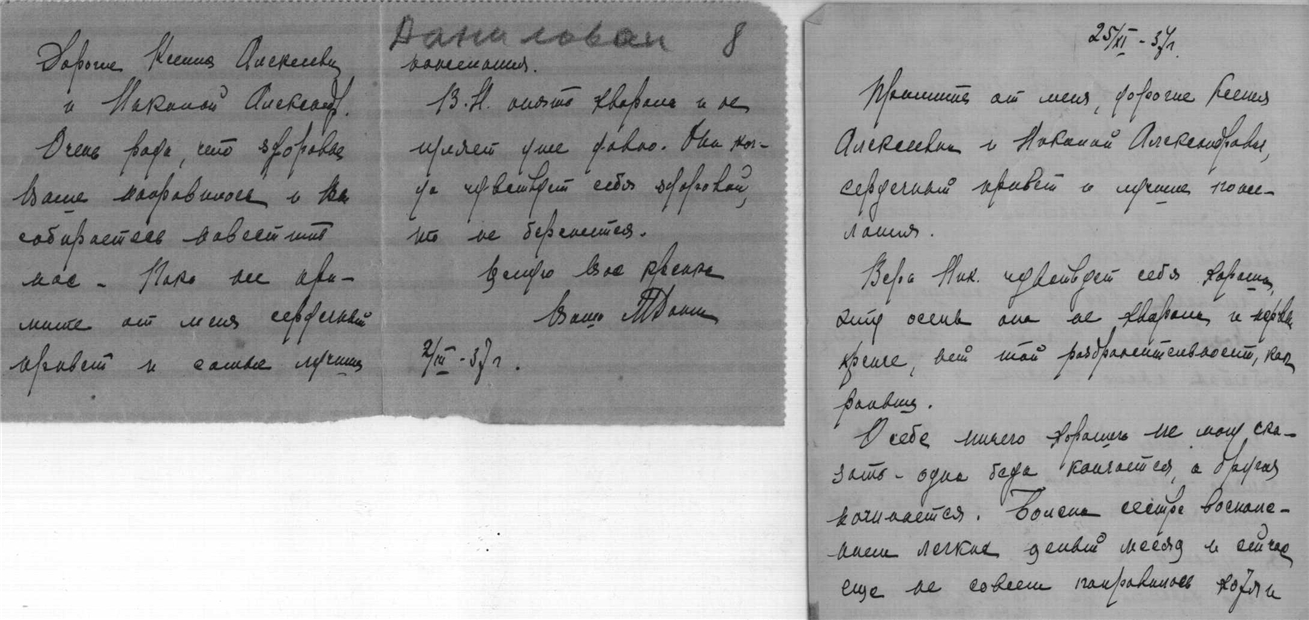 Дорогие Ксения Алексеевна
и Николай Александр.
Очень рада, что здоровье
Ваше поправилось и Вы
собираетесь навестить
нас – Пока же при-
мите от меня сердечный
привет и самые лучшие
Данилован 8
пожелания.
В. Н. опять хворала и не
гуляет уже давно. Она ког-
да чувствует себя здоровой,
то не бережется.
Целую Вас крепко
Ваша
2/III – 37 г.
25/XI – 37 г.
Примите от меня, дорогие Ксения
Алексеевна и Николай Александрович,
сердечный привет и лучшие поже-
лания.
Вера Ник. чувствует себя хорошо,
эту осень она не хворала и нервы
крепче, нет той раздражительности, как
раньше.
О себе ничего хорошего не могу ска-
зать – одна беда кончается, а другая
начинается. Болела сестра воспале-
нием легких целый месяц и сейчас
еще не совсем поправилась хотя и